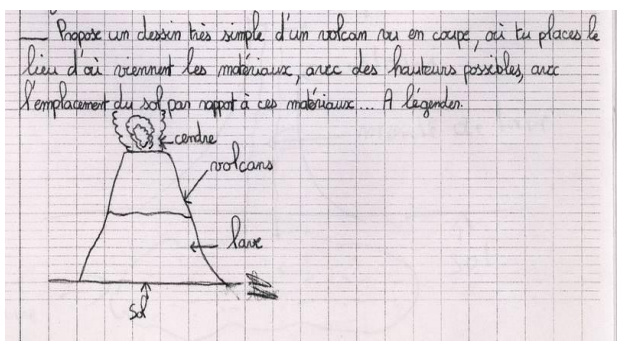 Propose un dessin très simple d'un volcan vu en coupe, où tu places le
lieu d'où viennent les matériaux, avec des hauteurs possibles, avec
l'emplacement du sol par rapport à ces matériaux... A légender.
cendre
volcans
lave
sol